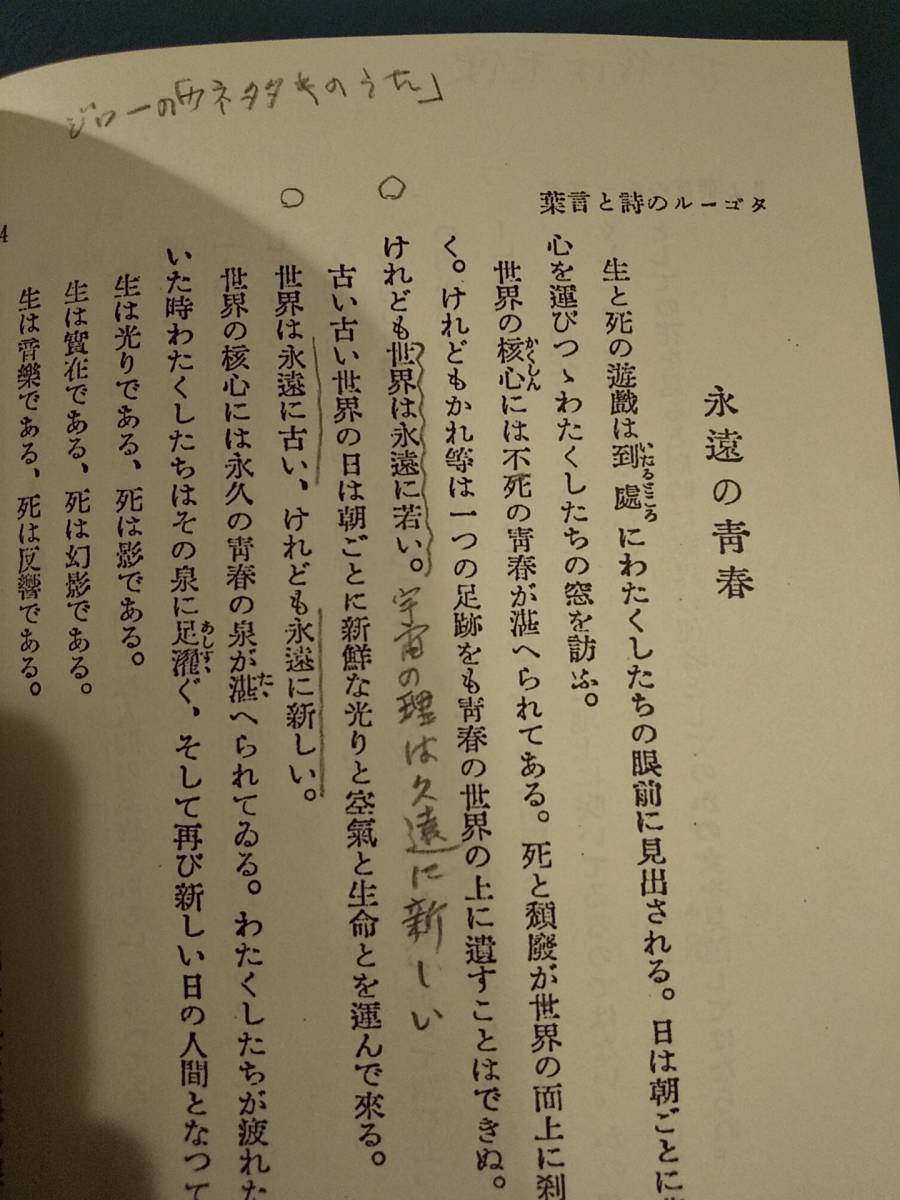 ジローの「ウネタタキのうた」
タゴールの詩と言葉
永遠の靑春
生と死の遊戲は到處にわたくしたちの眼前に見出される。日は朝ごとに
いたるどころ
心を運びつゝわたくしたちの窓を訪ふ。
世界の核心には不死の靑春が湛へられてある。死と頽廢が世界の面上に刹
かくしん
く。けれどもかれ等は一つの足跡をも靑春の世界の上に遺すことはできぬ。
けれども世界は永遠に若い。
宇宙の理は久遠に新しい
古い古い世界の日は朝ごとに新鮮な光りと空氣と生命とを運んで來る。
世界は永遠に古い、けれども永遠に新しい。
世界の核心には永久の靑春の泉が湛へられてゐる。わたくしたちが疲れた
たゝ
いた時わたくしたちはその泉に足濯ぐ、そして再び新しい日の人間となつて
あしすゝ
生は光りである、死は影である。
生は實在である、死は幻影である。
生は音樂である、死は反響である。
4